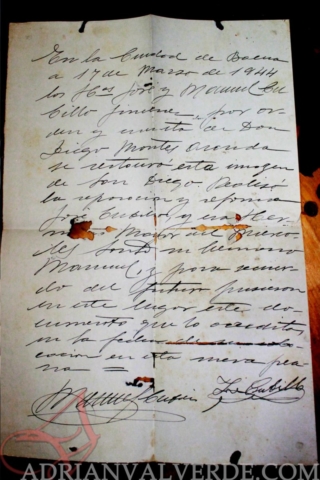 En la Ciudad de Baena
a 17 de Marzo de 1944
los Hos José y Manuel Cu
billo Jimenez por or
den y cuenta de Don
Diego Montes
se restauró esta imagen
de San Diego Realizó
la reparacion y reforma
José Cubillo y era Her
mano Mayor
su hermano
Manuel y para recuer
do del futuro pusieron
en este lugar este do
cumento que lo acredita
en la fecha de su colo
cacion en esta nueva pea
na =
José Cubillo
ADRIANVALVERDE.COM